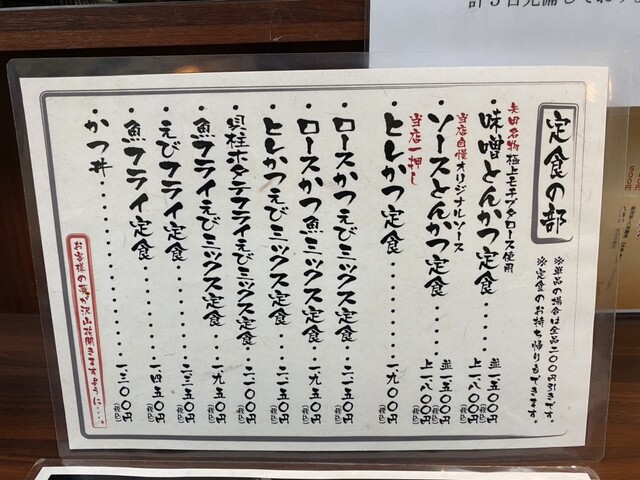 定食の部
※単品の場合は全品二〇〇円引きです。
※定食のお持ち帰りもできます。
矢田名物 極上モチブタロース使用
・味噌とんかつ定食
並 一五〇〇円(税込)
上 一八〇〇円(税込)
当店自慢 オリジナルソース
・ソースとんかつ定食
並 一五〇〇円(税込)
上 一八〇〇円(税込)
当店一押し
・ヒレかつ定食 一九〇〇円(税込)
・ロースかつえびミックス定食 二一五〇円(税込)
・ロースかつ魚ミックス定食 一九五〇円(税込)
・ヒレかつえびミックス定食 二一五〇円(税込)
・貝柱ホタテフライえびミックス定食 二一〇〇円(税込)
・魚フライえびミックス定食 一九五〇円(税込)
・えびフライ定食 二三五〇円(税込)
・魚フライ定食 一四五〇円(税込)
・かつ丼 一三〇〇円(税込)
お客様の夢が沢山花開きますように・・・。